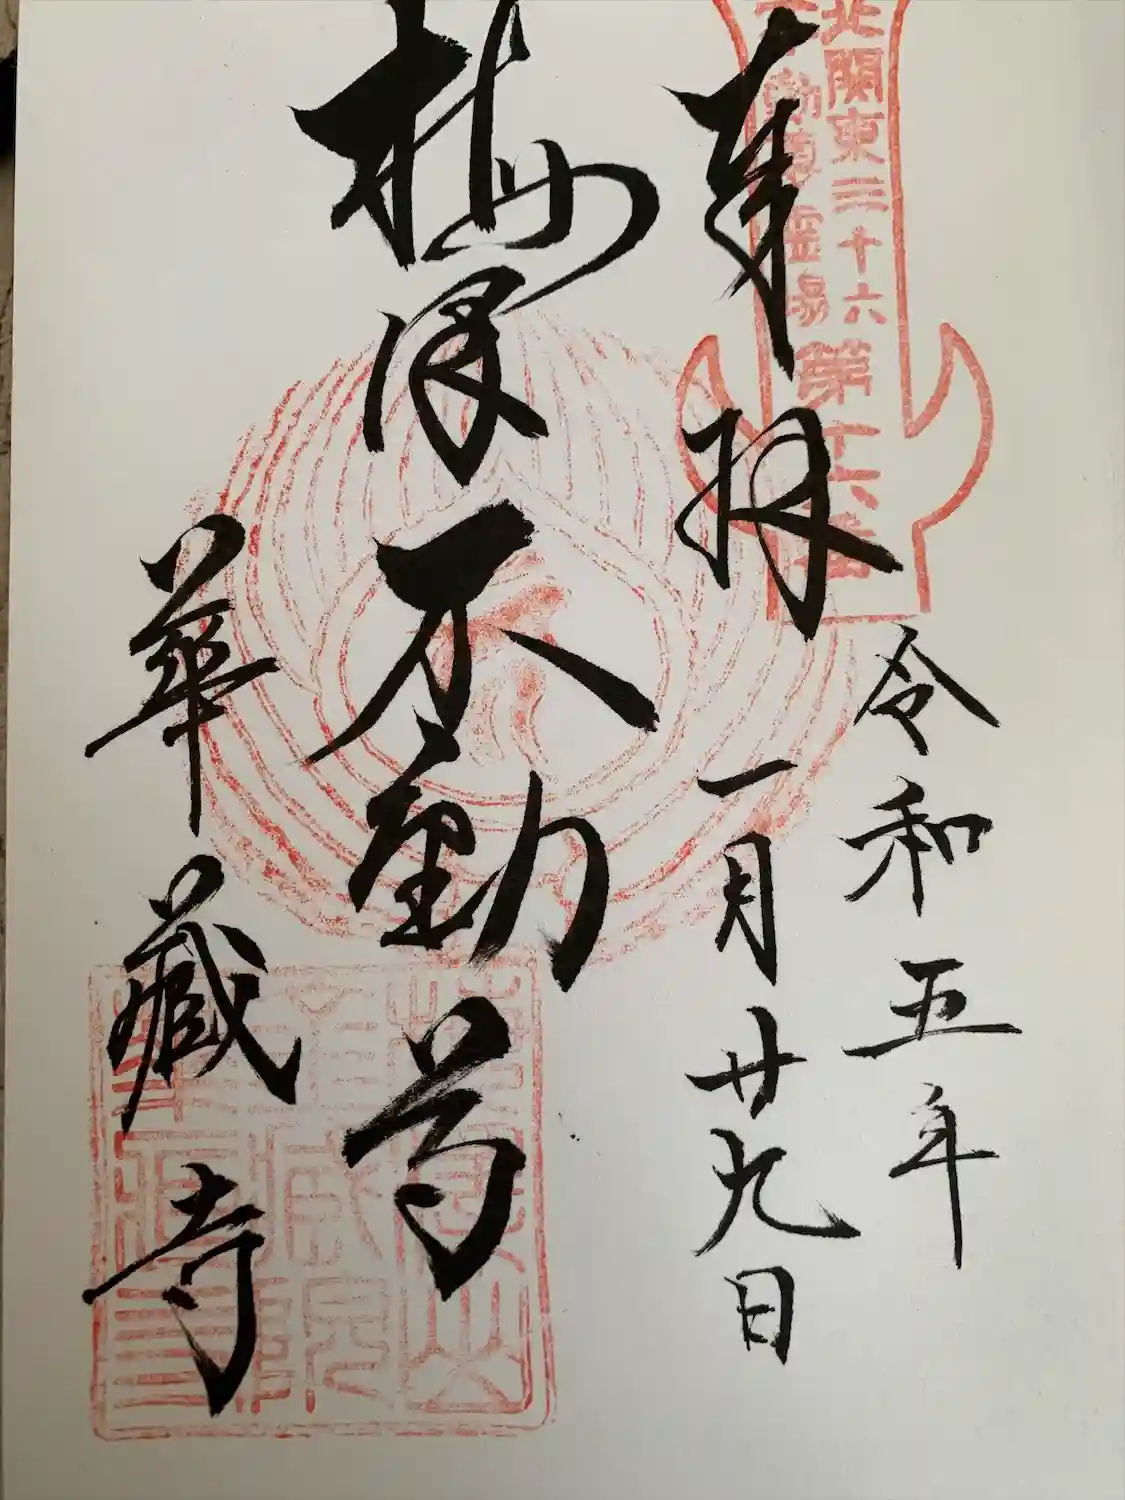 北關東三十六
不動尊霊場
第十六番
奉拝
令和五年
一月廿九日
梅澤不動尊
華蔵寺